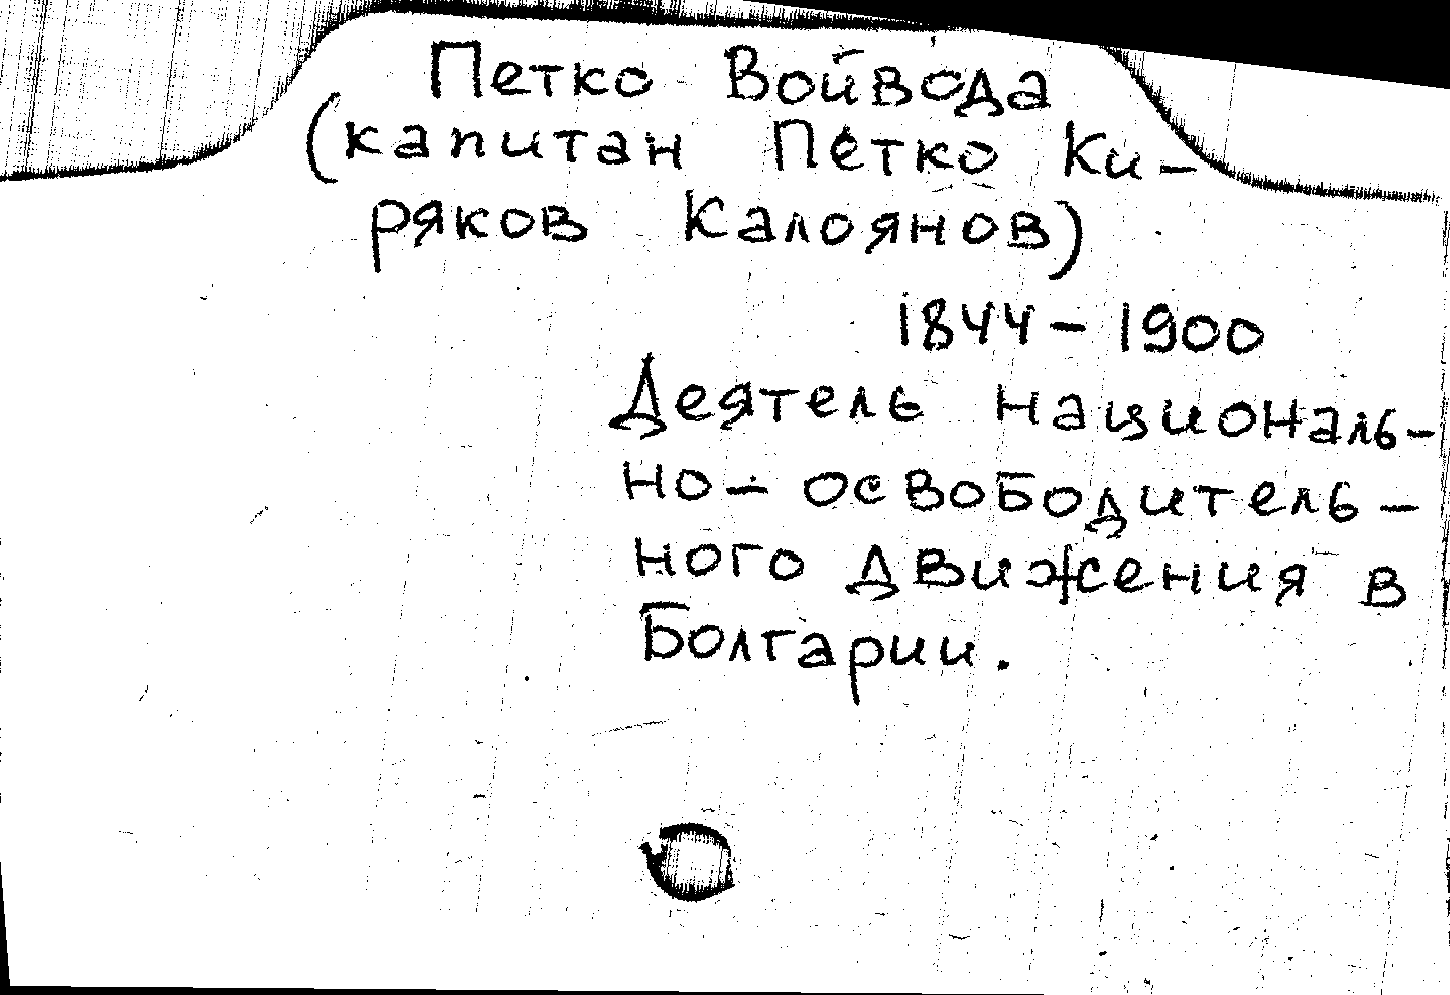 Петко Войвода
(капитан Петко Ки-
ряков Калоянов)
1844 - 1900
Деятель националь-
но - освободитель-
ного движения в
Болгарии.